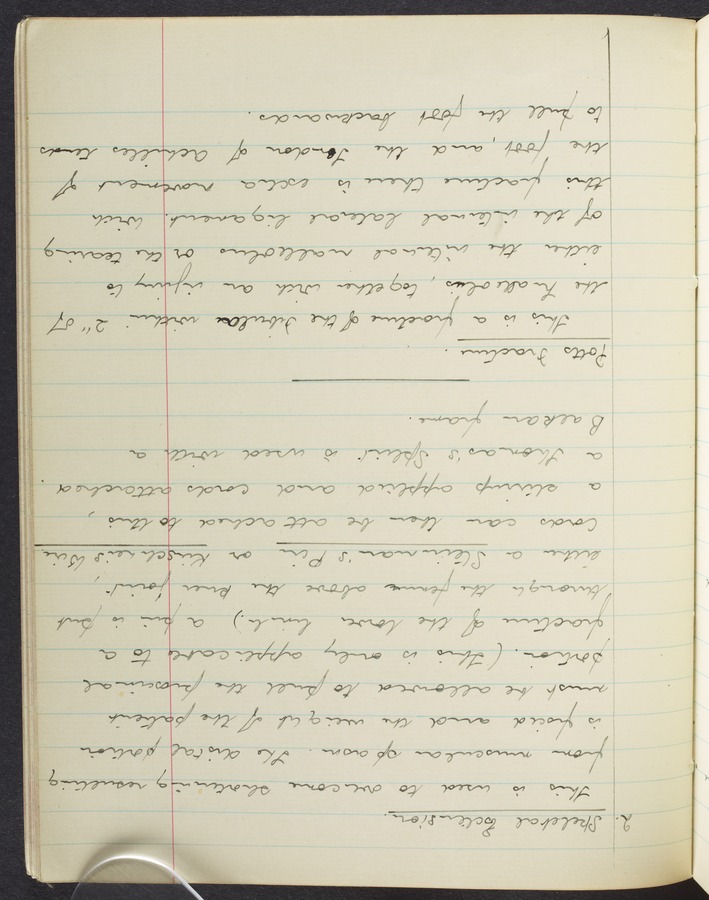 2. Skeletal Extension.
This is used to overcome shortening resulting
from muscular spasm. The distal portion
is fixed and the weight of the patient
must be allowed to pull the proximal
portion. (This is only applicable to a
fracture of the lower limb.) a pin is put
through the femur above the knee joint,
either a Steinman's Pin or Kirschner's Wire
Cords can then be attached to this,
a stirrup applied and cords attached.
a Thomas's Splint is used with a
Balkan frame.
Potts Fracture.
This is a fracture of the fibula within 2" of
the malleolus, together with an injury to
either the internal malleolus or the tearing
of the internal lateral ligament. With
this fracture there is extra movement of
the foot, and the Tendon of Achilles tends
to pull the foot backwards.